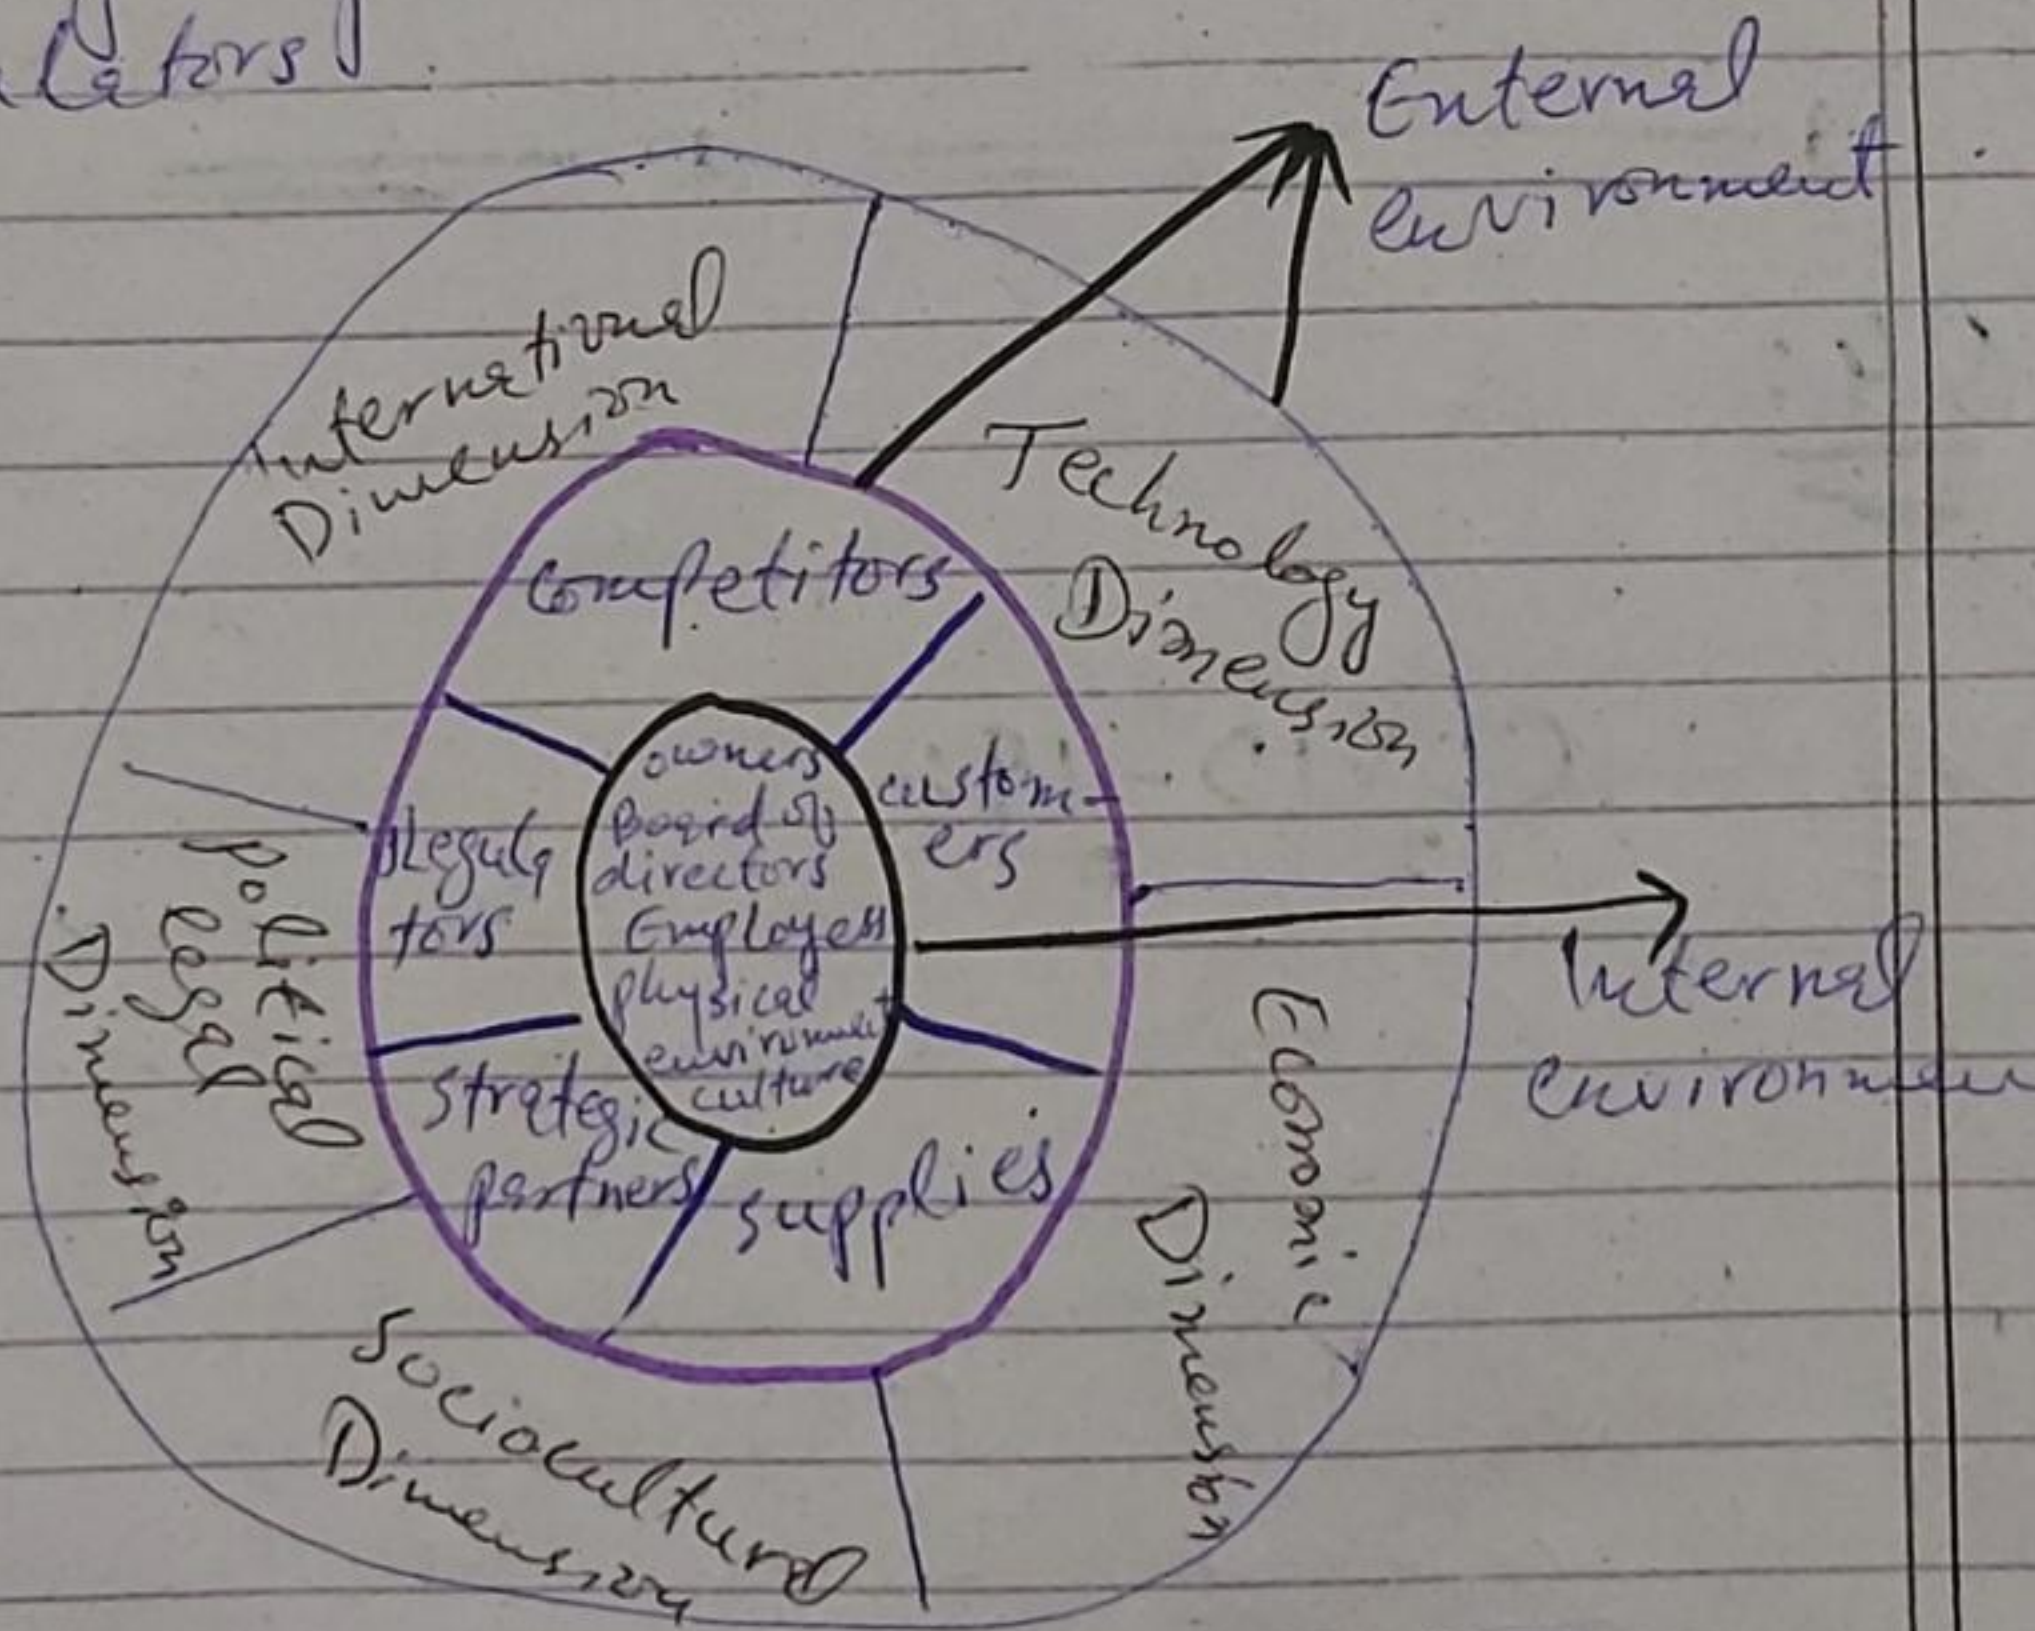 lators
External
environment
International
Dimension
Technology
Dimension
competitors
custom-
ers
Regula
tors
owners
Board of
directors
Employess
physical
environment
culture
political
legal
Dimension
strategic
partners
supplies
Internal
environmen
Economic
Dimension
Sociocultural
Dimension